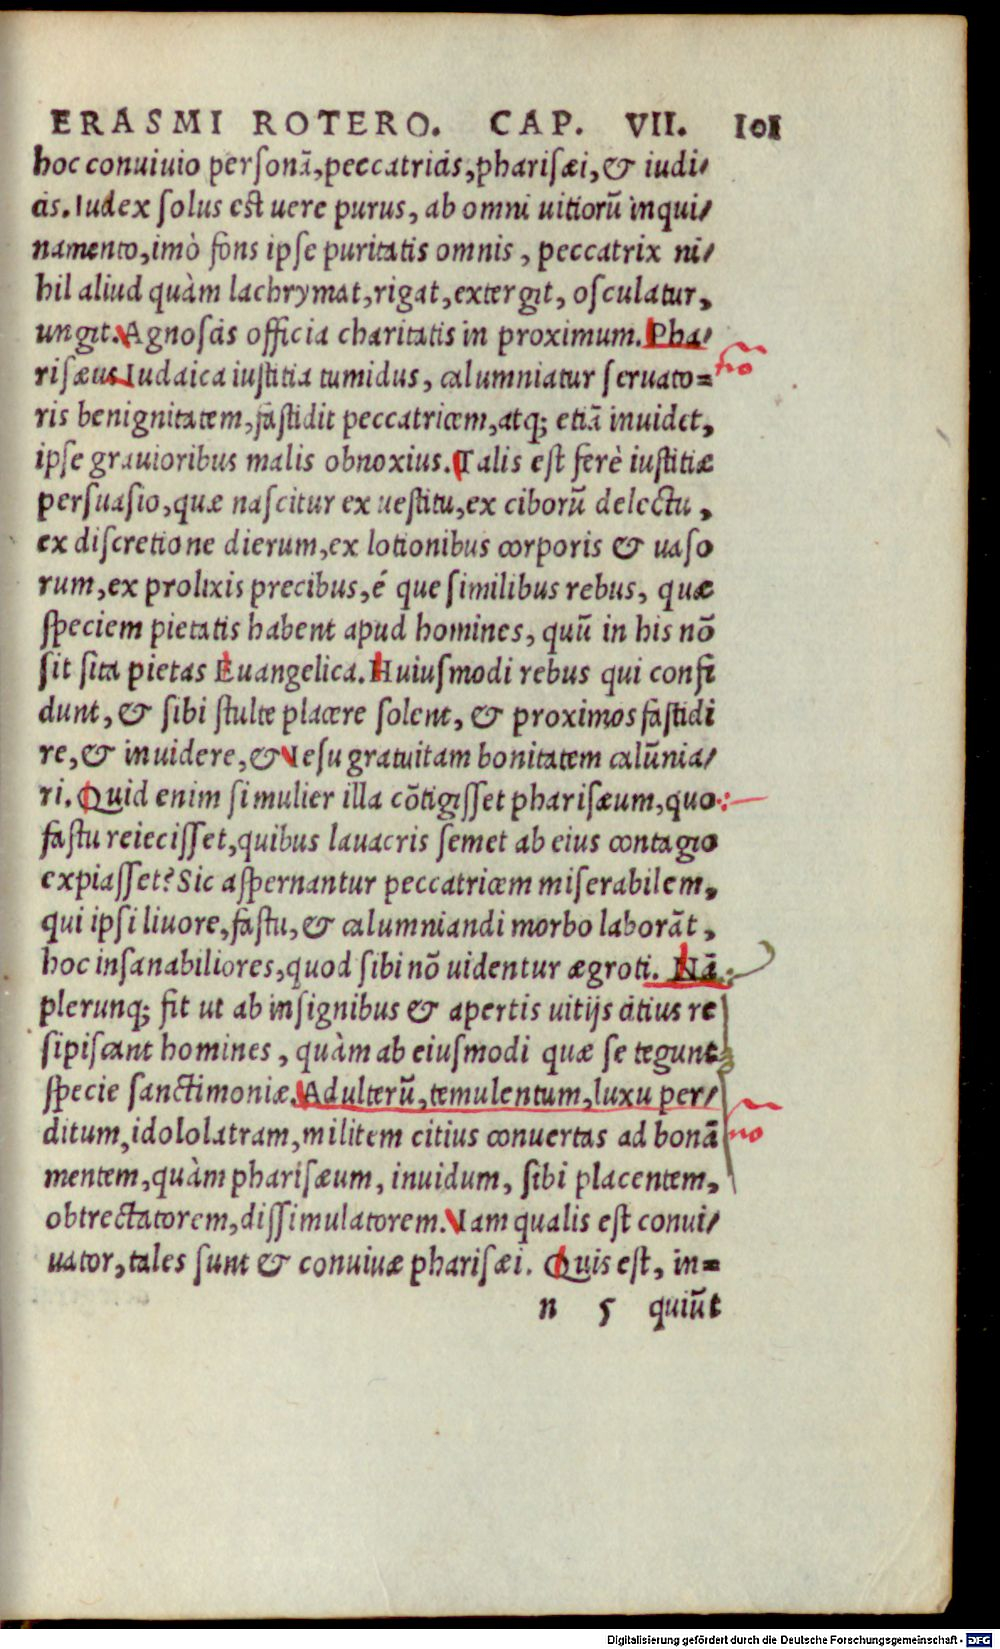 ERASMI ROTERO. CAP. VII. 101
hoc conuiuio personā, peccatricis, pharisæi, & iudi/
cis. Iudex solus est uere purus, ab omni uitiorũ inqui/
namento, imò fons ipse puritatis omnis, peccatrix ni/
hil aliud quàm lachrymat, rigat, extergit, osculatur,
ungit. Agnoscis officia charitatis in proximum. Pha/
no
risæus Iudaica iustitia tumidus, calumniatur seruato=
ris benignitatem, fastidit peccatricem, atq; etiā inuidet,
ipse grauioribus malis obnoxius. Talis est ferè iustitiæ
persuasio, quæ nascitur ex uestitu, ex ciborũ delectu,
ex discretione dierum, ex lotionibus corporis & uaso
rum, ex prolixis precibus, é que similibus rebus, quæ
speciem pietatis habent apud homines, quũ in his nō
sit sita pietas Euangelica. Huiusmodi rebus qui confi
dunt, & sibi stulte placere solent, & proximos fastidi
re, & inuidere, & Iesu gratuitam bonitatem calũnia/
ri. Quid enim si mulier illa cōtigisset pharisæum, quo
fastu reiecisset, quibus lauacris semet ab eius contagio
expiasset? Sic aspernantur peccatricem miserabilem,
qui ipsi liuore, fastu, & calumniandi morbo laborāt,
hoc insanabiliores, quod sibi nō uidentur ægroti. Nā
plerunq; fit ut ab insignibus & apertis uitijs citius re
sipiscant homines, quàm ab eiusmodi quæ se tegunt
specie sanctimoniæ. Adulterũ, temulentum, luxu per/
no
ditum, idololatram, militem citius conuertas ad bonā
mentem, quàm pharisæum, inuidum, sibi placentem,
obtrectatorem, dissimulatorem. Iam qualis est conui/
uator, tales sunt & conuiuæ pharisæi. Quis est, in=
n 5 quiũt
Digitalisierung gefördert durch die Deutsche Forschungsgemeinschaft - DFG